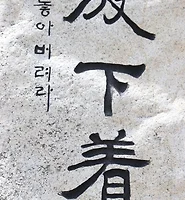 放下着
놓아버려라